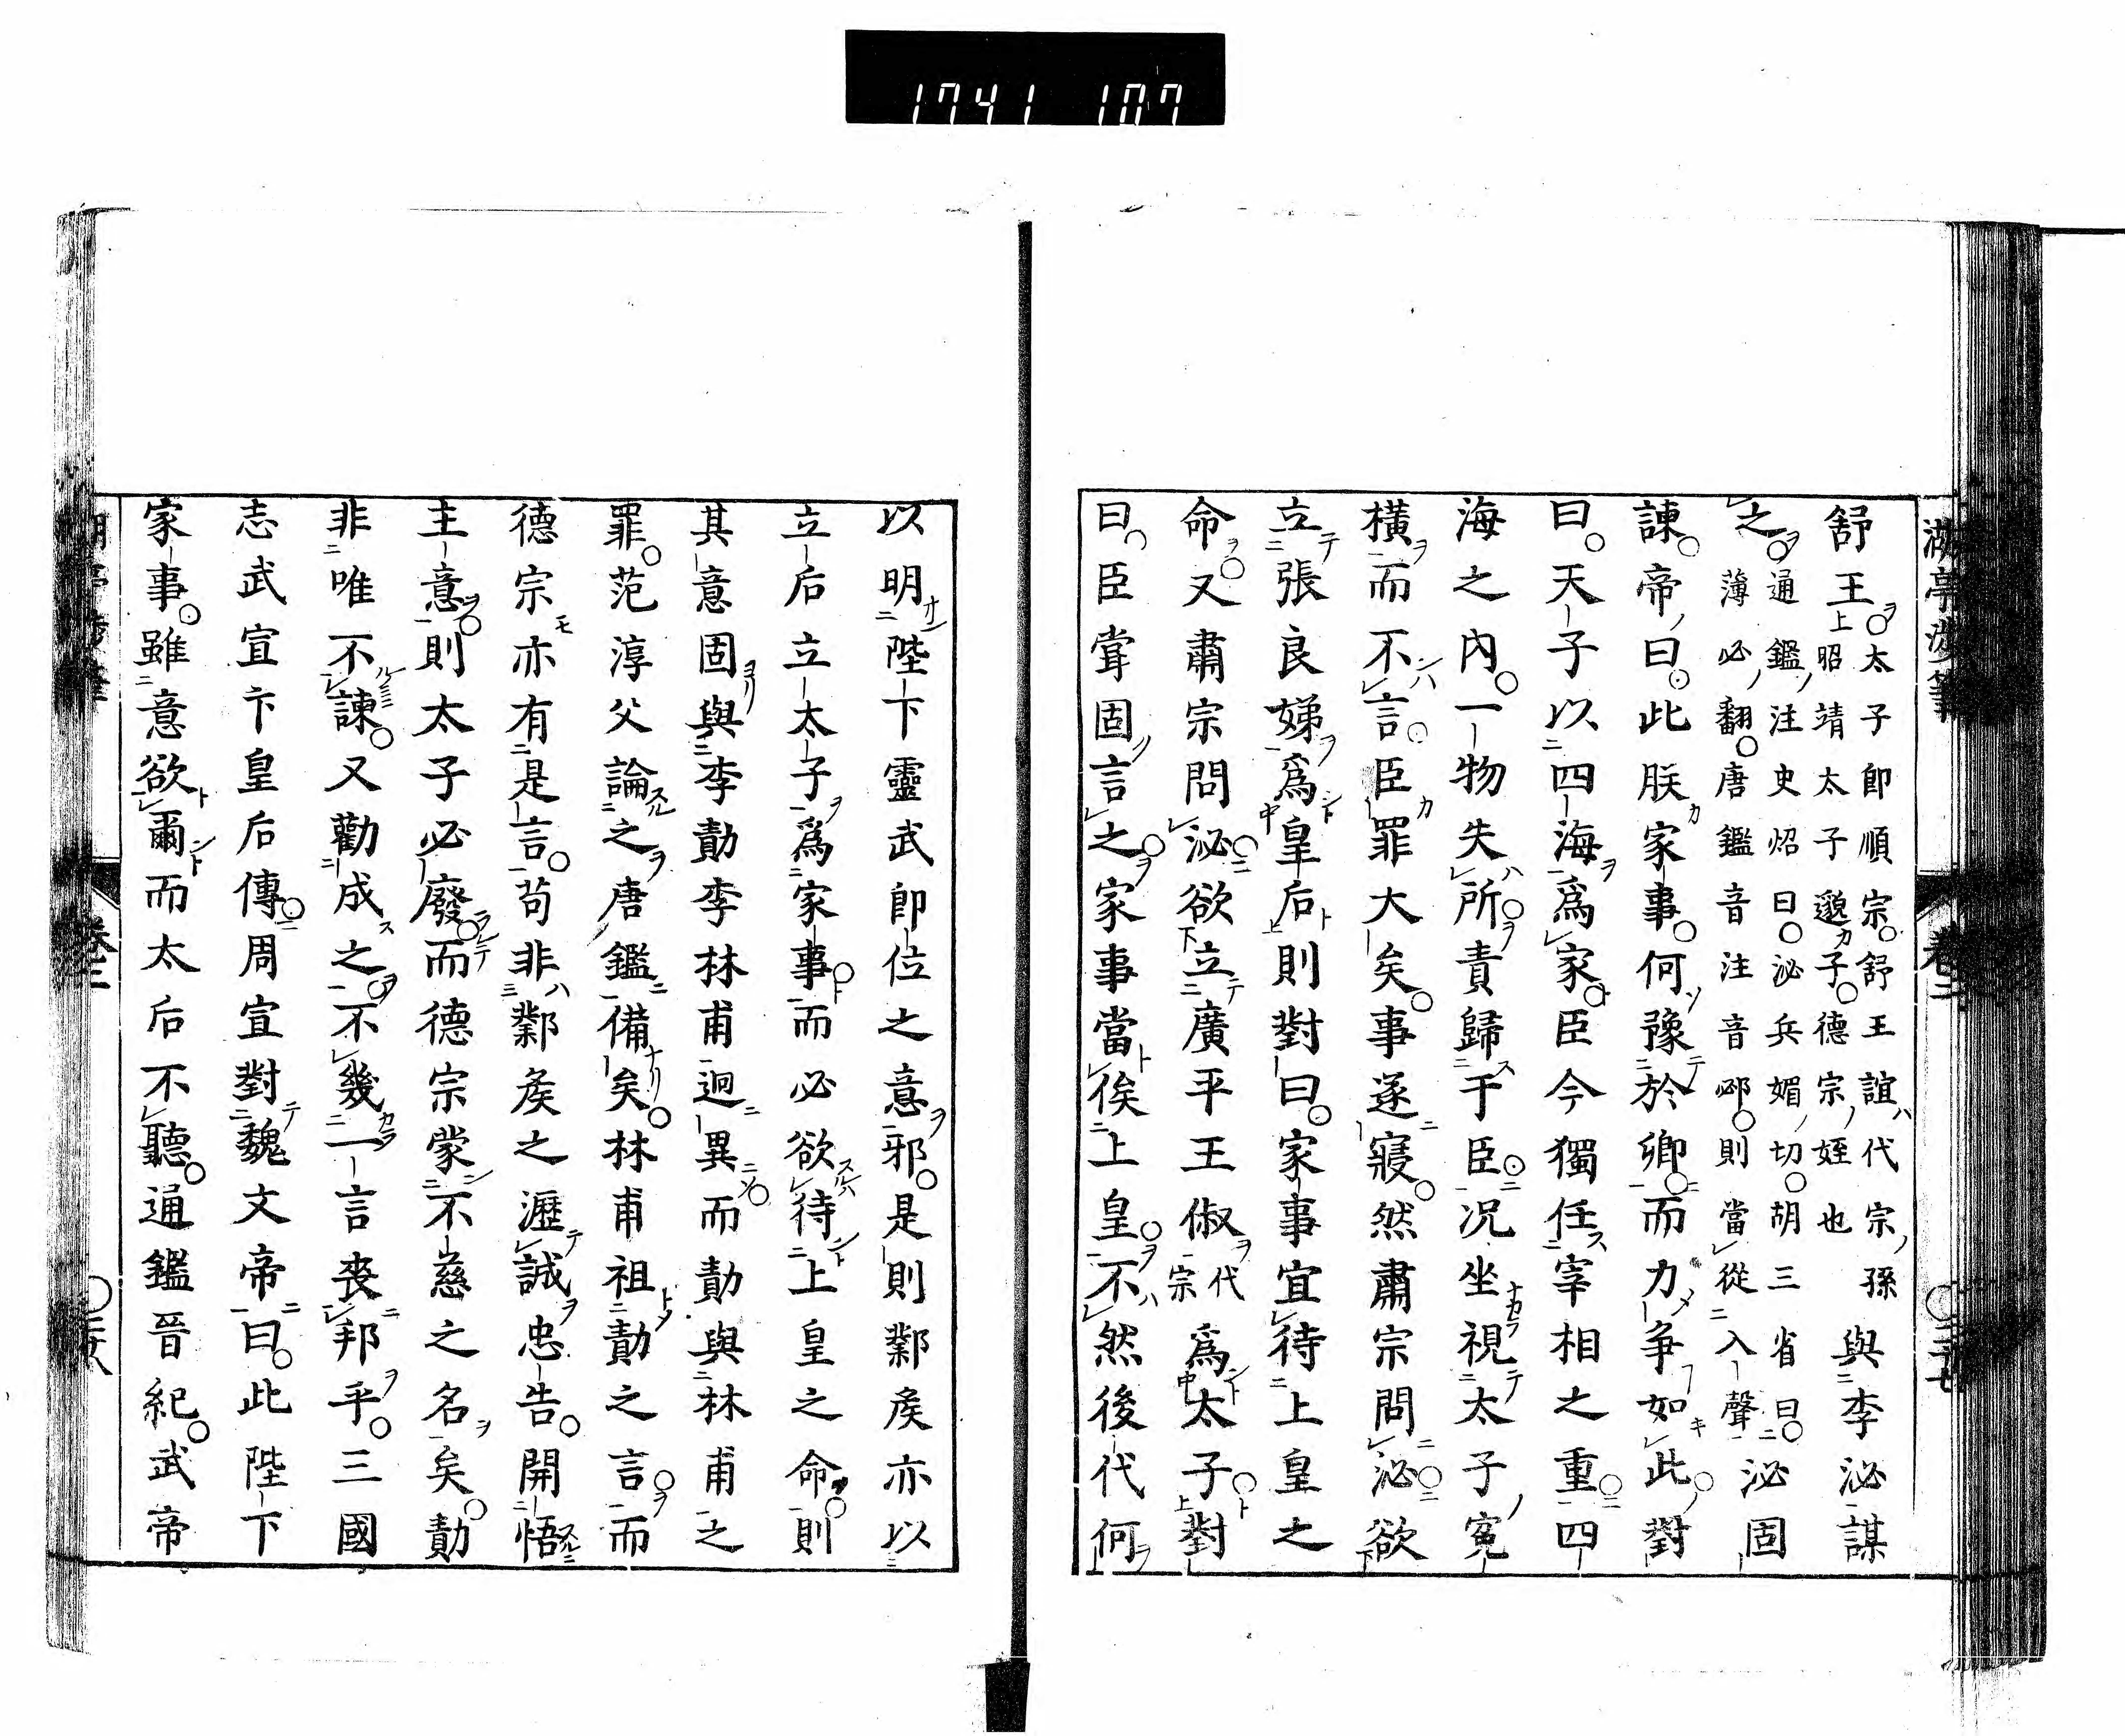 1741 107
湖亭渉筆 卷二 ○二十七
舒王太子即順宗舒王誼代宗孫昭靖太子邈子德宗姪也與李泌謀
之通鑑注史炤曰泌兵媚切胡三省曰薄必翻唐鑑音注音邲則當從入聲泌固
諫帝曰此朕家事何豫於卿而力爭如此對
曰天子以四海爲家臣今獨任宰相之重四
海之內一物失所責歸于臣况坐視太子寃
橫而不言臣罪大矣事遂寢然肅宗問泌欲
立張良娣爲皇后則對曰家事宜待上皇之
命又肅宗問泌欲立廣平王俶代宗爲太子對
曰臣甞固言之家事當俟上皇不然後代何
以明陛下靈武即位之意邪是則鄴矦亦以
立后立太子爲家事而必欲待上皇之命則
其意固與李勣李林甫迥異而勣與林甫之
罪范淳父論之唐鑑備矣林甫祖勣之言而
德宗亦有是言苟非鄴矦之瀝誠忠告開悟
主意則太子必廢而德宗蒙不慈之名矣勣
非唯不諫又勸成之不幾一言喪邦乎三國
志武宣卞皇后傳周宣對魏文帝曰此陛下
家事雖意欲爾而太后不聽通鑑晉紀武帝
卷二